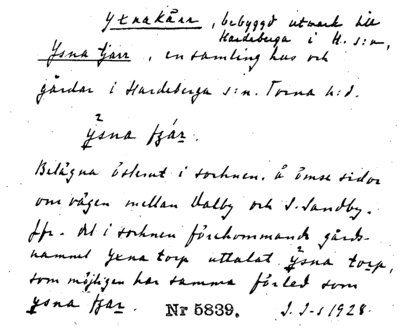 Yxnakärr, bebyggd utmark till
Hardeberga i H. s:n,
Ysna tjarr, en samling hus och
gårdar i Hardeberga s:n. Torna h:d.
ysna fjár.
Belägna österut i socknen. å ömse sidor
om vägen mellan Dalby och S. Sandby.
Jfr. det i socknen förekommande gårds-
namnet Yxna torp uttalat ysna torp,
som möjligen har samma förled som
ysna fjar. Nr 5839. I. I-s 1928.